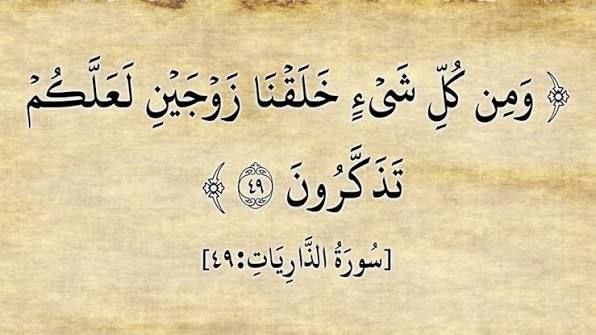 ﴿ وَمِن كُلِّ شَيْءٍ خَلَقْنَا زَوْجَيْنِ لَعَلَّكُمْ
تَذَكَّرُونَ ٤٩ ﴾
[سُورَةُ الذَّارِيَاتِ:٤٩]